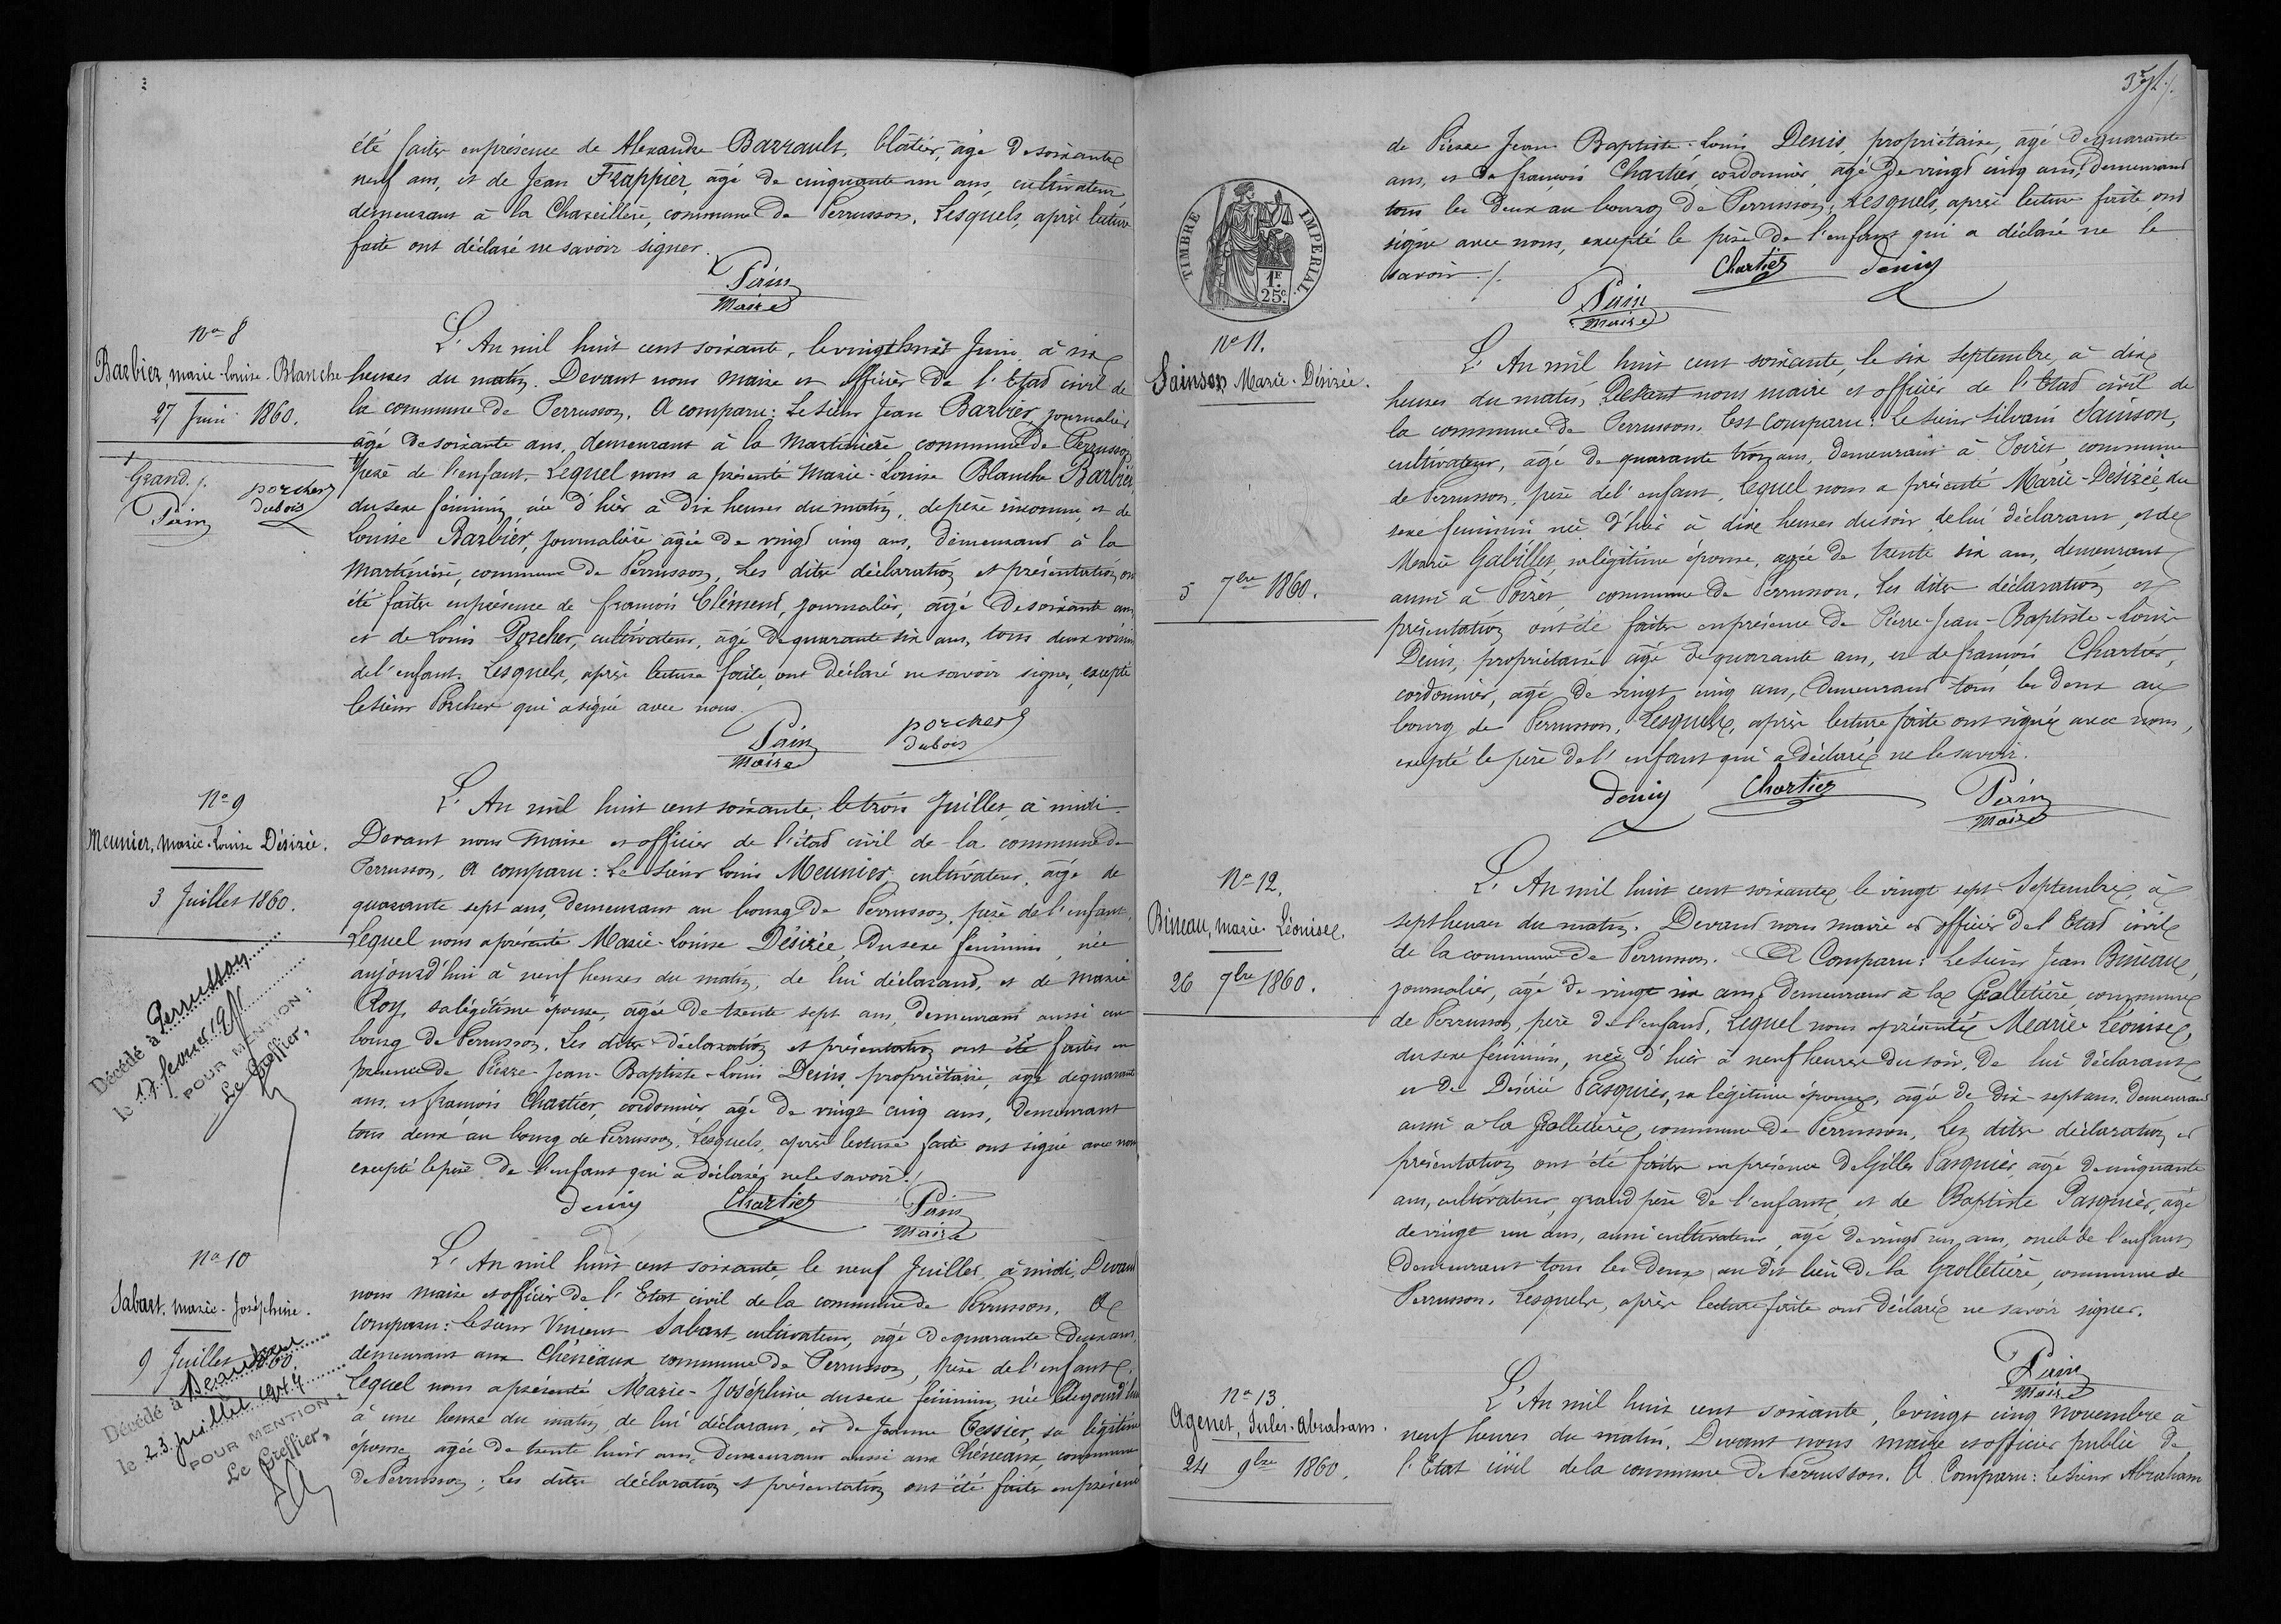 été faites en présence de Alexandre Barrault, blâtier, âgé de soixante
neuf ans, et de Jean Frappier, âgé de cinquante un ans, cultivateur
demeurant à la Chareillère, commune de Perrusson. Lesquels, après lecture
faite ont déclaré ne savoir signer.
Pain
Maire
No 8
Barbier, marie-louise-Blanche
27 Juin 1860.
Grand.
porcher
dubois
Pain
L'An mil huit cent soixante, le vingt huit Juin, à six
heures du matin. Devant nous maire et officier de l'Etat civil de
la commune de Perrusson. A comparu: Le sieur Jean Barbier journalier
âgé de soixante ans, demeurant à la Martinière commune de Perrusson
père de l'enfant. Lequel nous a présenté Marie-Louise Blanche Barbier
du sexe féminin née d'hier à dix heures du matin, de père inconnu, et de
Louise Barbier, journalière âgée de vingt cinq ans, demeurant à la
Martinière, commune de Perrusson, Les dites déclaration et présentation ont
été faites en présence de françois Clément, journalier, âgé de soixante ans
et de Louis Porcher, cultivateur, âgé de quarante six ans, tous deux voisins
de l'enfant. Lesquels, après lecture faite, ont déclaré ne savoir signer, excepté
le sieur Porcher qui a signé avec nous.
Pain
Maire
porcher
dubois
No 9
Meunier, marie-Louise Désirée.
3 Juillet 1860.
Décédé à Perrusson
le 17 février 19
POUR MENTION:
Le Greffier,
L'An mil huit cent soixante, le trois Juillet, à midi
Devant nous Maire et officier de l'état civil de la commune de
Perrusson, A comparu: Le sieur Louis Meunier, cultivateur, âgé de
quarante sept ans, demeurant au bourg de Perrusson, père de l'enfant,
Lequel nous a présenté Marie-Louise Désirée, du sexe féminin, née
aujourd'hui à neuf heures du matin, de lui déclarant, et de Marie
Roy, sa légitime épouse, âgée de trente sept ans, demeurant aussi au
bourg de Perrusson. Les dites déclaration et présentation ont été faites en
présence de Pierre-Jean-Baptiste-Louis Denis, propriétaire, âgé de quarante
ans, et françois Chartier, cordonnier, âgé de vingt cinq ans, demeurant
tous deux au bourg de Perrusson. Lesquels, après lecture faite ont signé avec nous
excepté le père de l'enfant qui a déclaré ne le savoir.
denis
Chartier
Pain
Maire
No 10
Sabart, marie-Joséphine.
9 Juillet 1860.
Décédé à
le 23 juillet 1944
POUR MENTION:
Le Greffier,
L'An mil huit cent soixante, le neuf Juillet, à midi, Devant
nous maire et officier de l'Etat civil de la commune de Perrusson. A
Comparu: Le sieur Vincent Sabart, cultivateur, âgé de quarante deux ans,
demeurant aux Chéneaux commune de Perrusson, père de l'enfant.
Lequel nous a présenté Marie-Joséphine du sexe féminin, née Aujourd'hui
à une heure du matin, de lui déclarant, et de Jeanne Tessier, sa légitime
épouse, âgée de trente huit ans, demeurant aussi aux Chéneaux, commune
de Perrusson; Les dites déclaration et présentation ont été faites en présence
de Pierre Jean-Baptiste-Louis Denis, propriétaire, âgé de quarante
ans, et de françois Chartier, cordonnier, âgé de vingt cinq ans, demeurant
tous les deux au bourg de Perrusson, Lesquels, après lecture faite, ont
signé avec nous, excepté le père de l'enfant qui a déclaré ne le
savoir ./.
Chartier
denis
Pain
Maire
TIMBRE IMPERIAL
1F.
25C.
No 11.
Sainson Marie-Désirée.
5 7bre 1860.
L'An mil huit cent soixante, le six septembre, à dix
heures du matin, Devant nous maire et officier de l'Etat civil de
la commune de Perrusson. Est Comparu: Le sieur Silvain Sainson,
cultivateur, âgé de quarante trois ans, demeurant à Poiret, commune
de Perrusson, père de l'enfant, Lequel nous a présenté Marie-Désirée, du
sexe féminin née d'hier à dix heures du soir de lui déclarant, et de
Marie Gabillet, sa légitime épouse, agée de trente six ans, demeurant
aussi à Poiret, commune de Perrusson. Les dites déclaration et
présentation ont été faites en présence de Pierre-Jean-Baptiste-Louis
Denis, propriétaire, âgé de quarante ans, et de françois Chartier,
cordonnier, âgé de vingt cinq ans, demeurant tous les deux au
bourg de Perrusson. Lesquels, après lecture faite ont signé avec nous,
excepté le père de l'enfant qui a déclaré ne le savoir.
denis
Chartier
Pain
Maire
No 12.
Bineau, marie-Léonise.
26 7bre 1860.
L'An mil huit cent soixante, le vingt sept Septembre, à
sept heures du matin. Devant nous maire et officier de l'Etat civil
de la commune de Perrusson. A Comparu: Le sieur Jean Bineau,
journalier, âgé de vingt six ans, demeurant à la Grolletière, commune
de Perrusson, père de l'enfant, Lequel nous a présenté Marie Léonise,
du sexe féminin, née d'hier à neuf heures du soir, de lui déclarant
et de Désirée Pasquier, sa légitime épouse, âgée de dix-sept ans, demeurant
aussi à la Grolletière, commune de Perrusson, Les dites déclaration et
présentation ont été faites en présence de Gilles Pasquier, âgé de cinquante
ans, cultivateur, grand père de l'enfant, et de Baptiste Pasquier, âgé
de vingt un ans, aussi cultivateur, âgé de vingt un ans, oncle de l'enfant
demeurant tous les deux au dit lieu de la Grolletière, commune de
Perrusson. Lesquels, après lecture faite ont déclaré ne savoir signer.
Pain
Maire
No 13.
Agenet, Jules-Abraham.
24 9bre 1860.
L'An mil huit cent soixante, le vingt cinq novembre à
neuf heures du matin. Devant nous maire et officier public de
l'Etat civil de la commune de Perrusson. A Comparu: Le sieur Abraham